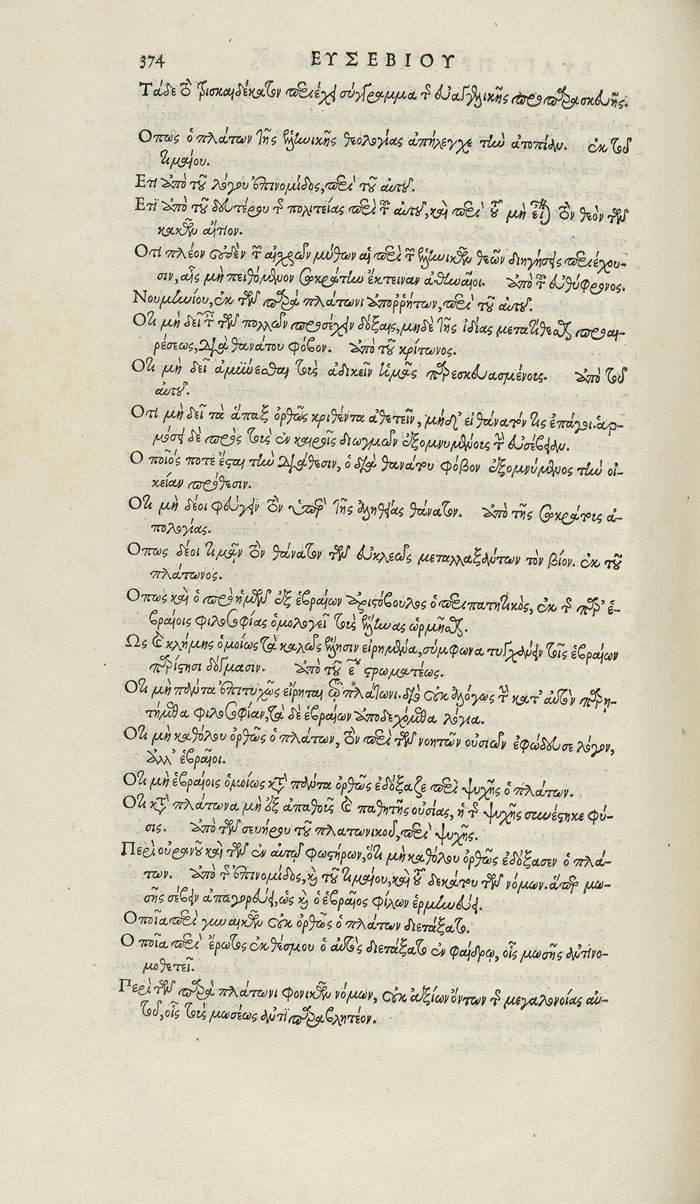 374 ΕΥΣΕΒΙΟΥ
Τάδε τὸ τρισκαιδέκατον περιέχει σύγγραμμα τῆς εὐαγγελικῆς προπαρασκευῆς.
Ὅπως ὁ πλάτων τῆς ἑλληνικῆς θεολογίας ἀπήλεγχε τὴν ἀτοπίαν. ἐκ τοῦ
τιμαίου.
Ἔτι ἀπὸ τοῦ λόγου ἐπινομίδος, περὶ τοῦ αὐτοῦ.
Ἔτι ἀπὸ τοῦ δευτέρου τῆς πολιτείας περὶ τοῦ αὐτοῦ, καὶ περὶ τοῦ μὴ εἶναι τὸν θεὸν τῶν
κακῶν αἴτιον.
Ὅτι πλέον οὐδὲν τῶν αἰσχρῶν μύθων αἱ περὶ τῶν ἑλληνικῶν θεῶν διηγήσεις περιέχου-
σιν, αἷς μὴ πειθόμενον σωκράτην ἔκτειναν ἀθηναῖοι. ἀπὸ τοῦ εὐθύφρονος.
Νουμηνίου, ἐκ τῶν παρὰ πλάτωνι ἀπορρήτων, περὶ τοῦ αὐτοῦ.
Ὅτι μὴ δεῖ ταῖς τῶν πολλῶν προσέχειν δόξαις, μηδὲ τῆς ἰδίας μετατίθεσθαι προαι-
ρέσεως, διὰ θανάτου φόβον. ἀπὸ τοῦ κρίτωνος.
Ὅτι μὴ δεῖ ἀμύνεσθαι τοὺς ἀδικεῖν ἡμᾶς παρεσκευασμένους. ἀπὸ τοῦ
αὐτοῦ.
Ὅτι μὴ δεῖ τὰ ἅπαξ ὀρθῶς κριθέντα ἀθετεῖν, μήδ' εἰ θάνατόν τις ἐπάγοι. ἁρ-
μόσει δὲ πρὸς τοὺς ἐν καιροῖς διωγμῶν ἐξομνυμένους τὴν εὐσέβειαν.
Ὁποῖός ποτε ἔσται τὴν διάθεσιν, ὁ διὰ θανάτου φόβον ἐξομνύμενος τὴν οἰ-
κείαν πρόθεσιν.
Ὅτι μὴ δέοι φεύγειν τὸν ὑπὲρ τῆς ἀληθείας θάνατον. ἀπὸ τῆς σωκράτους ἀ-
πολογίας.
Ὅπως δέοι τιμᾷν τὸν θάνατον τῶν εὐκλεῶς μεταλλαξάντων τὸν βίον. ἐκ τοῦ
πλάτωνος.
Ὅπως καὶ ὁ πρὸ ἡμῶν ἐξ ἑβραίων ἀριστόβουλος ὁ περιπατητικός, ἐκ τῆς παρ' ἑ-
βραίοις φιλοσοφίας ὁμολογεῖ τοὺς ἕλληνας ὡρμῆσθαι.
Ὡς καὶ κλήμης ὁμοίως τὰ καλῶς ἕλλησιν εἰρημένα, σύμφωνα τυγχάνειν τοῖς ἑβραίων
παρίστησι δόγμασιν. ἀπὸ τοῦ ε στρωματέως.
Ὅτι μὴ πάντα ἐπιτυχῶς εἴρηται τῷ πλάτωνι. διὸ οὐκ ἀλόγως τὴν κατ' αὐτὸν παρῃ-
τήμεθα φιλοσοφίαν, τὰ δὲ ἑβραίων ἀποδεχόμεθα λόγια.
Ὅτι μὴ καθόλου ὀρθῶς ὁ πλάτων, τὸν περὶ τῶν νοητῶν οὐσιῶν ἐφώδευσε λόγον,
ἀλλ' ἑβραῖοι.
Ὅτι μὴ ἑβραίοις ὁμοίως κατὰ πάντα ὀρθῶς ἐδόξαζε περὶ ψυχῆς ὁ πλάτων.
Ὅτι κατὰ πλάτωνα μὴ ἐξ ἀπαθοῦς καὶ παθητῆς οὐσίας, ἡ τῆς ψυχῆς συνέστηκε φύ-
σις. ἀπὸ τῶν σευήρου τοῦ πλατωνικοῦ, περὶ ψυχῆς.
Περὶ οὐρανοῦ καὶ τῶν ἐν αὐτῷ φωστήρων, ὅτι μὴ καθόλου ὀρθῶς ἐδόξασεν ὁ πλά-
των. ἀπὸ τῆς ἐπινομίδος, καὶ τοῦ τιμαίου, καὶ τοῦ δεκάτου τῶν νόμων. ἅπερ μω-
σῆς σέβειν ἀπαγορεύει, ὡς καὶ ὁ ἑβραῖος φίλων ἑρμηνεύει.
Ὁποῖα περὶ γυναικῶν οὐκ ὀρθῶς ὁ πλάτων διετάξατο.
Ὁποῖα περὶ ἔρωτος ἐκθέσμου ὁ αὐτὸς διετάξατο ἐν φαίδρῳ, οἷς μωσῆς ἀντινο-
μοθετεῖ.
Περὶ τῶν παρὰ πλάτωνι φονικῶν νόμων, οὐκ ἀξίων ὄντων τῆς μεγαλονοίας αὐ-
τοῦ, οἷς τοὺς μωσέως ἀντιπαραβλητέον.